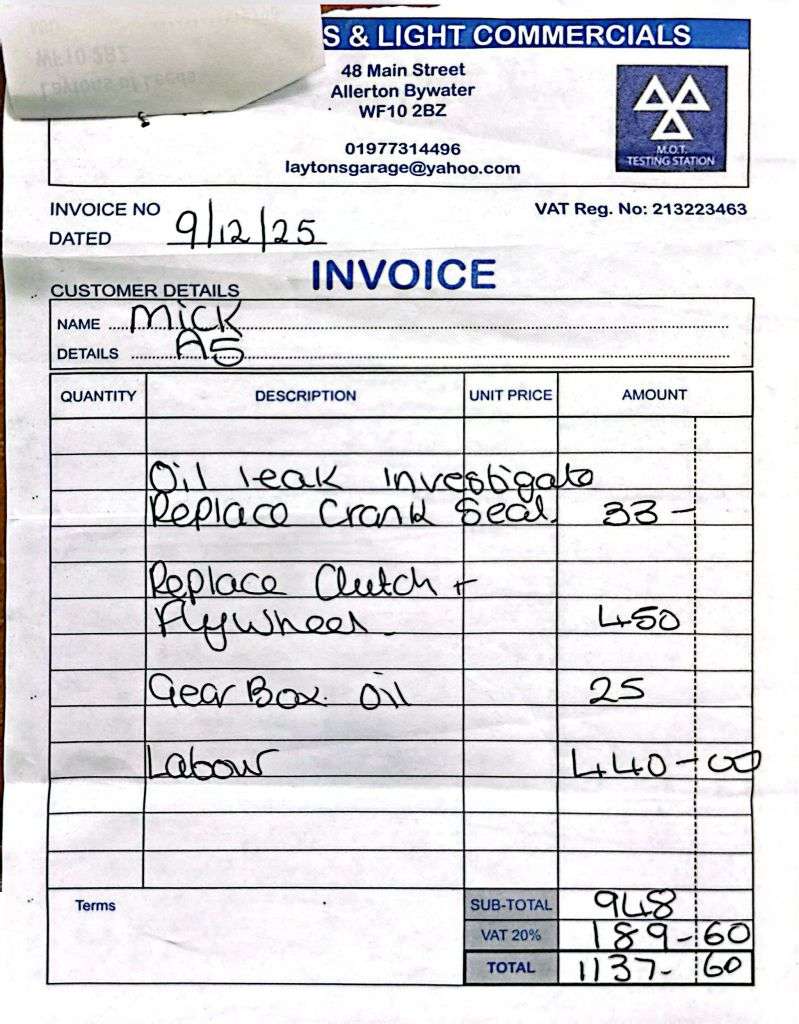 S & LIGHT COMMERCIALS
48 Main Street
Allerton Bywater
WF10 2BZ
01977314496
laytonsgarage@yahoo.com
M.O.T.
TESTING STATION
INVOICE NO
VAT Reg. No: 213223463
DATED 9/12/25
INVOICE
CUSTOMER DETAILS
NAME Mick
DETAILS A5
QUANTITY DESCRIPTION UNIT PRICE AMOUNT
Oil leak investigate
Replace Crank Seal. 33-
Replace Clutch +
Flywheel. 450
Gear Box Oil 25
Labour 440-00
Terms
SUB-TOTAL 948
VAT 20% 189-60
TOTAL 1137-60